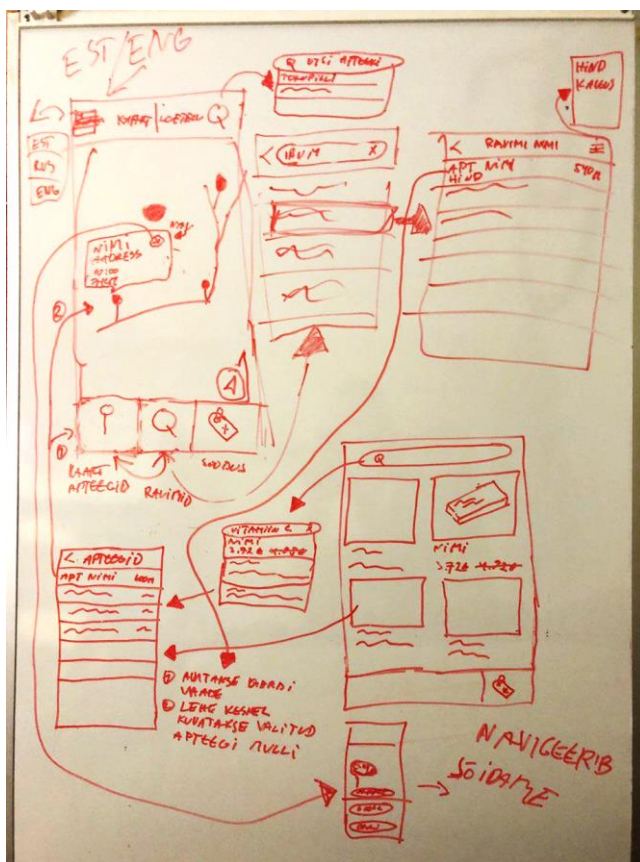 EST/ENG
Q OTSI APTEEKI
TOKOPILLI
HIND
KAUGUS
KAART | LOETELU
EST
RUS
ENG
X
RAVIMI NIMI
APT NIMI 540m
HIND
NIMI
ADDRESS
A
KAART
APTEEGID
RAVIMID
SOODUS
VITAMIIN C X
NIMI
3.92€ 4.92€
NIMI
3.72€ 4.92€
< APTEEGID
APT NIMI 600m
① AVATAKSE KAARDI
VAADE
② LEHE KESKEL
KUVATAKSE VALITUD
APTEEGI MULLI
NAVIGEERIB
SÕIDAME